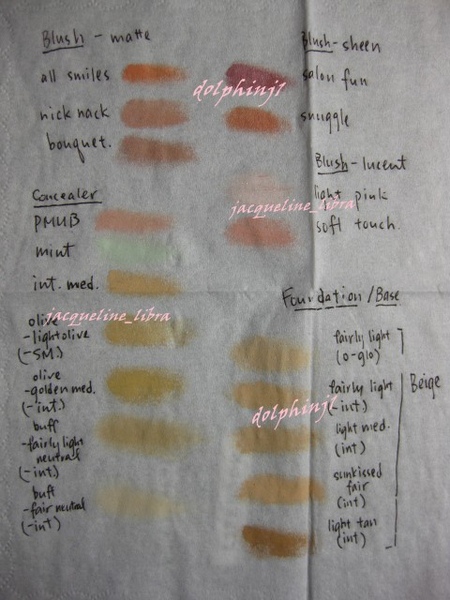 Blush - matte
all smiles
nick nack
bouquet.
Concealer
PMUB
mint
int. med.
olive
-light olive
(-SM.)
olive
-golden med.
(-int.)
buff
-fairly light
neutral
(-int)
buff
-fair neutral
(-int)
Blush-sheen
salon fun
snuggle
Blush-lucent
light pink
soft touch.
Foundation/Base
fairly light
(o-glo)
fairly light
(-int)
light med.
(int)
sunkissed
fair
(int)
light tan
(int)
Beige
dolphinj1
jacqueline_libra
jacqueline_libra
dolphinj1